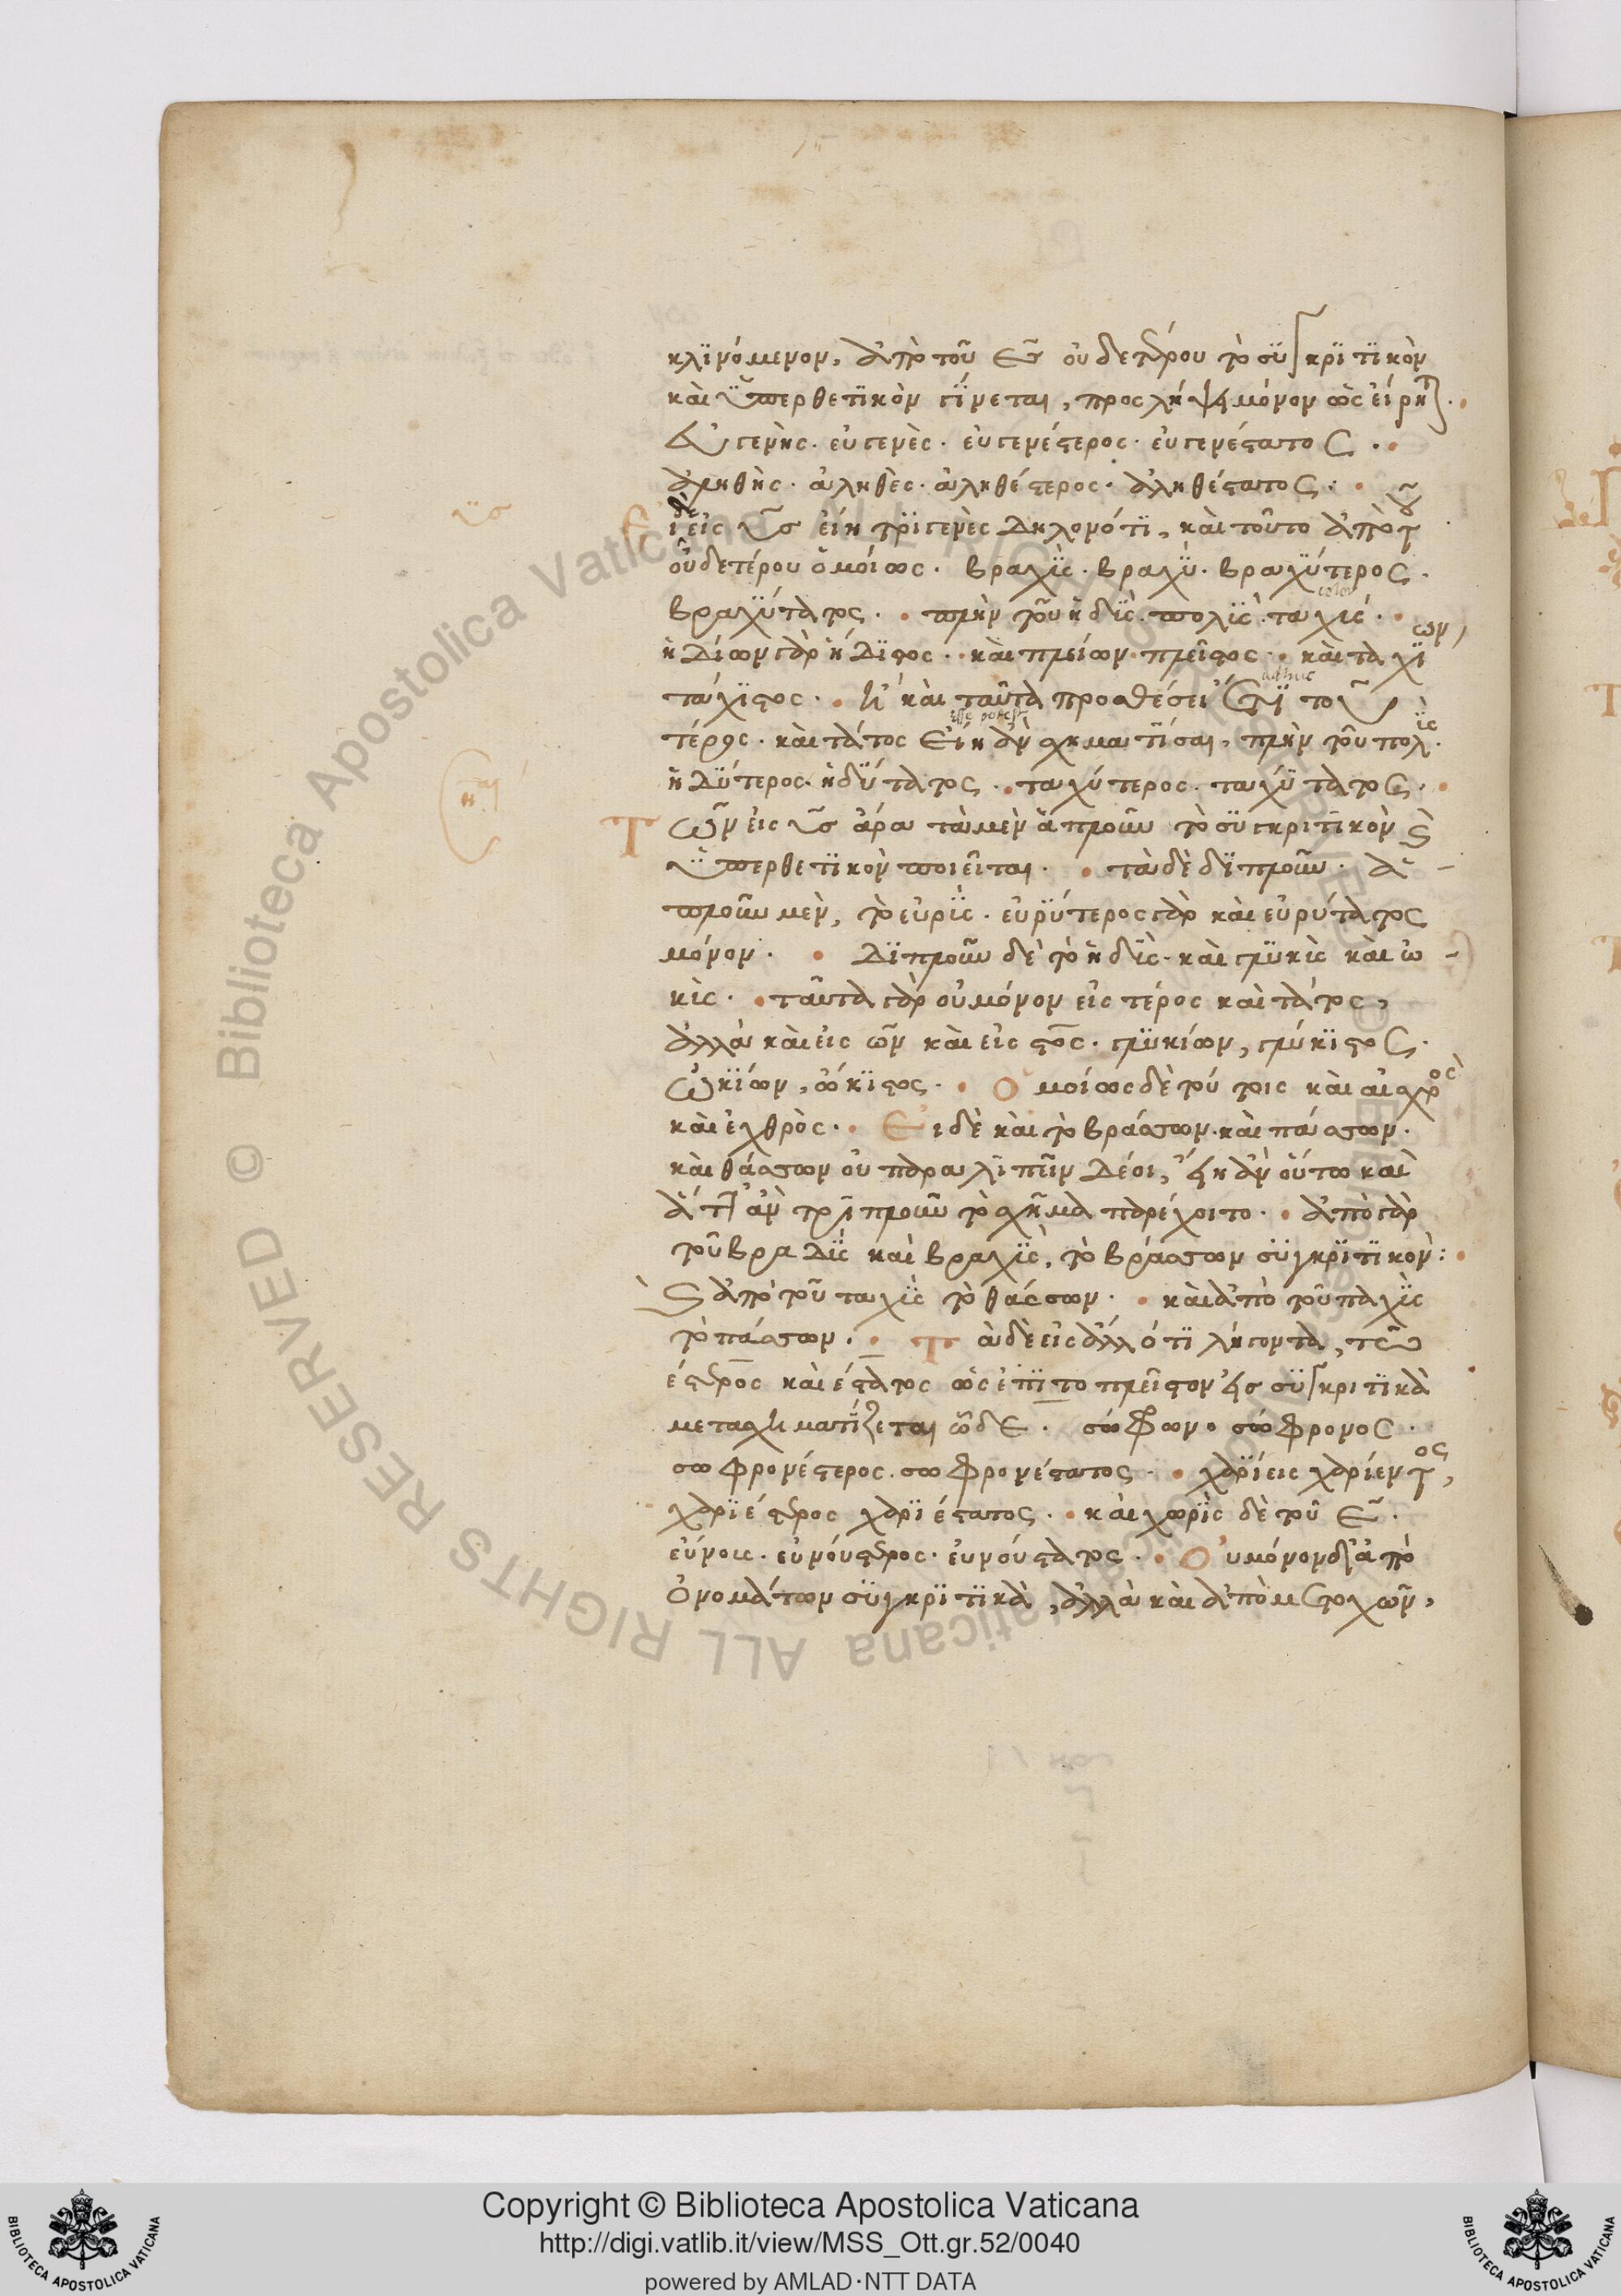 κλϊνόμενον, ἀπὸ τοῦ ε̃ν οὐδετέρου τὸ συγκρϊτϊκὸν
καὶ ὑπερθετϊκὸν γίνεται, προσλήψει μόνον ὡς εἴρηται.
εὐγενὴς. εὐγενὲς. εὐγενέστερος. εὐγενέστατος.
ἀληθὴς. ἀληθὲς. ἀληθέστερος. ἀληθέστατος.
υς
εἰ δὲ εἰς υς εἴη τρϊγενὲς δηλονότϊ, καὶ τοῦτο ἀπὸ τοῦ
οὐδετέρου ὁμοίως. βραχὺς. βραχὺ. βραχύτερος.
βραχύτατος. πλὴν τοῦ ἡδὺς. πολὺς. ταχὺς.
ἡδίων γὰρ ἥδϊστος. καὶ πλείων πλεῖστος. καὶ ταχίων,
τάχϊστος. ἢ καὶ ταῦτα προσθέσει ἔτι τοῦ
adhuc
τέρος. καὶ τάτος εἴη ἂν σχηματίσαι, πλὴν τοῦ πολὺς.
esse potest
ἡδύτερος. ἡδύτατος. ταχύτερος. ταχύτατος.
Τῶν εἰς υς ἄρα τὰ μὲν ἁπλοῦν τὸ συγκριτϊκὸν καὶ
ὑπερθετϊκὸν ποιεῖται. τὰ δὲ δϊπλοῦν. ἁ-
πλοῦν μὲν, τὸ εὐρὺς. εὐρύτερος γὰρ καὶ εὐρύτατος
μόνον. δϊπλοῦν δὲ τὸ ἡδὺς. καὶ γλυκὺς καὶ ὠ-
κὺς. ταῦτα γὰρ οὐ μόνον εἰς τέρος καὶ τάτος,
ἀλλὰ καὶ εἰς ων καὶ εἰς στος. γλυκίων, γλύκϊστος.
ὠκϊίων, ὤκϊστος. Ὁμοίως δὲ τούτοις καὶ αἰσχρὸς
καὶ ἐχθρὸς. Εἰ δὲ καὶ τὸ βράσσων. καὶ πάσσων.
καὶ θάσσων οὐ παραλϊπεῖν δέοι, εἴη ἂν οὕτω καὶ
τρϊπλοῦν τὸ σχῆμα παρέχοιτο. ἀπὸ γὰρ
τοῦ βραδὺς καὶ βραχὺς, τὸ βράσσων συγκρϊτϊκὸν:
καὶ ἀπὸ τοῦ ταχὺς τὸ θάσσων. καὶ ἀπὸ τοῦ παχὺς
τὸ πάσσων. Τὰ δὲ εἰς ἄλλό τϊ λήγοντα, τῶ
έστερος καὶ έστατος ὡς ἐπϊτοπλεῖστον εἰς συγκριτϊκὰ
μετασχηματϊζεται ὧδε. σώφρων. σώφρονος.
σωφρονέστερος. σωφρονέστατος. χαρϊίεις χαρίεντος,
χαρϊέστερος χαρϊέστατος. καὶ χωρὶς δὲ τοῦ ε̃.
εὔνους. εὐνούστερος. εὐνούστατος. Οὐ μόνον δὲ ἀπὸ
ὀνομάτων συγκρϊτϊκὰ, ἀλλὰ καὶ ἀπὸ μετοχῶν,
Copyright © Biblioteca Apostolica Vaticana
http://digi.vatlib.it/view/MSS_Ott.gr.52/0040
powered by AMLAD·NTT DATA
BIBLIOTECA APOSTOLICA VATICANA
BIBLIOTECA APOSTOLICA VATICANA